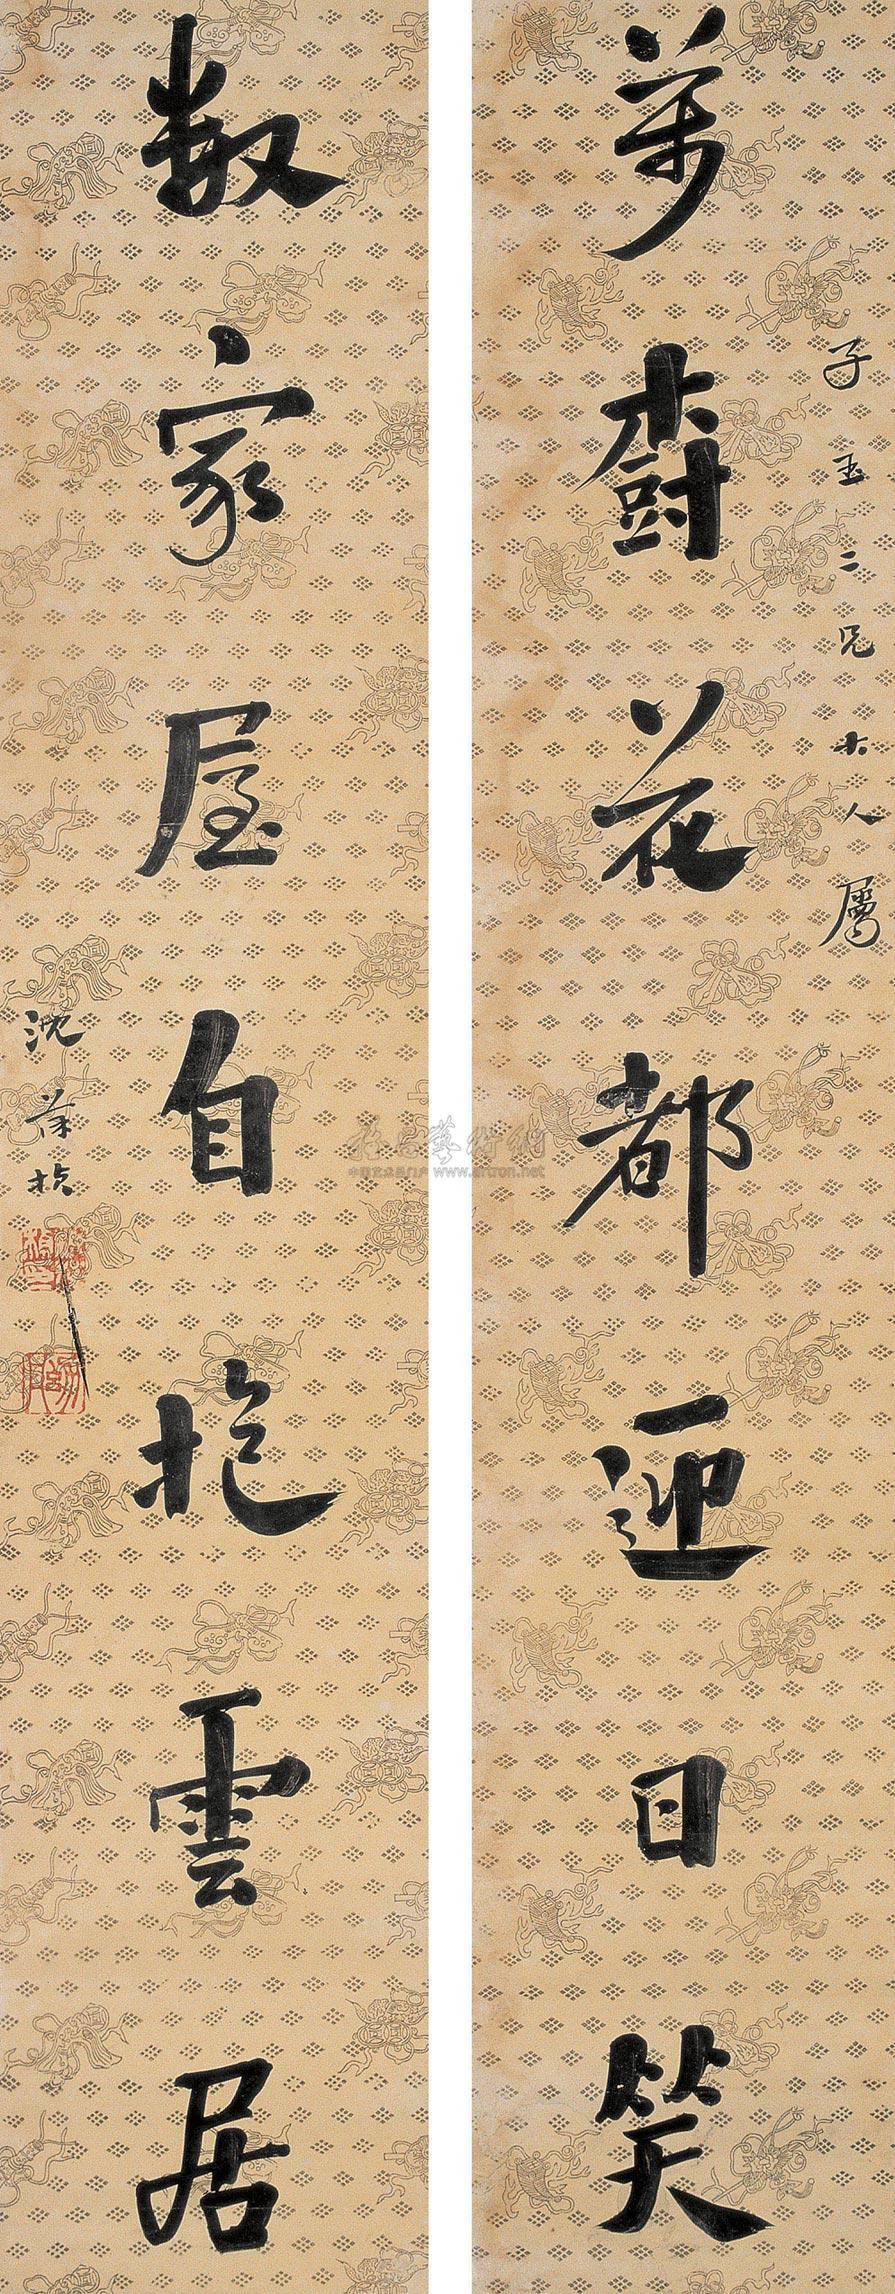 子玉二兄大人屬
萬樹花都迎日笑
數家屋自抱雲居
沈葆楨
www.artron.net